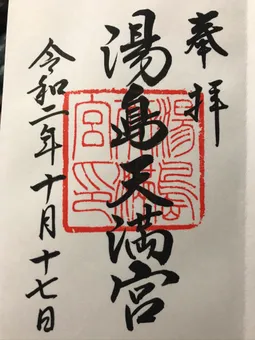 奉拝
湯島天満宮
令和二年十月十七日
湯島
宮印